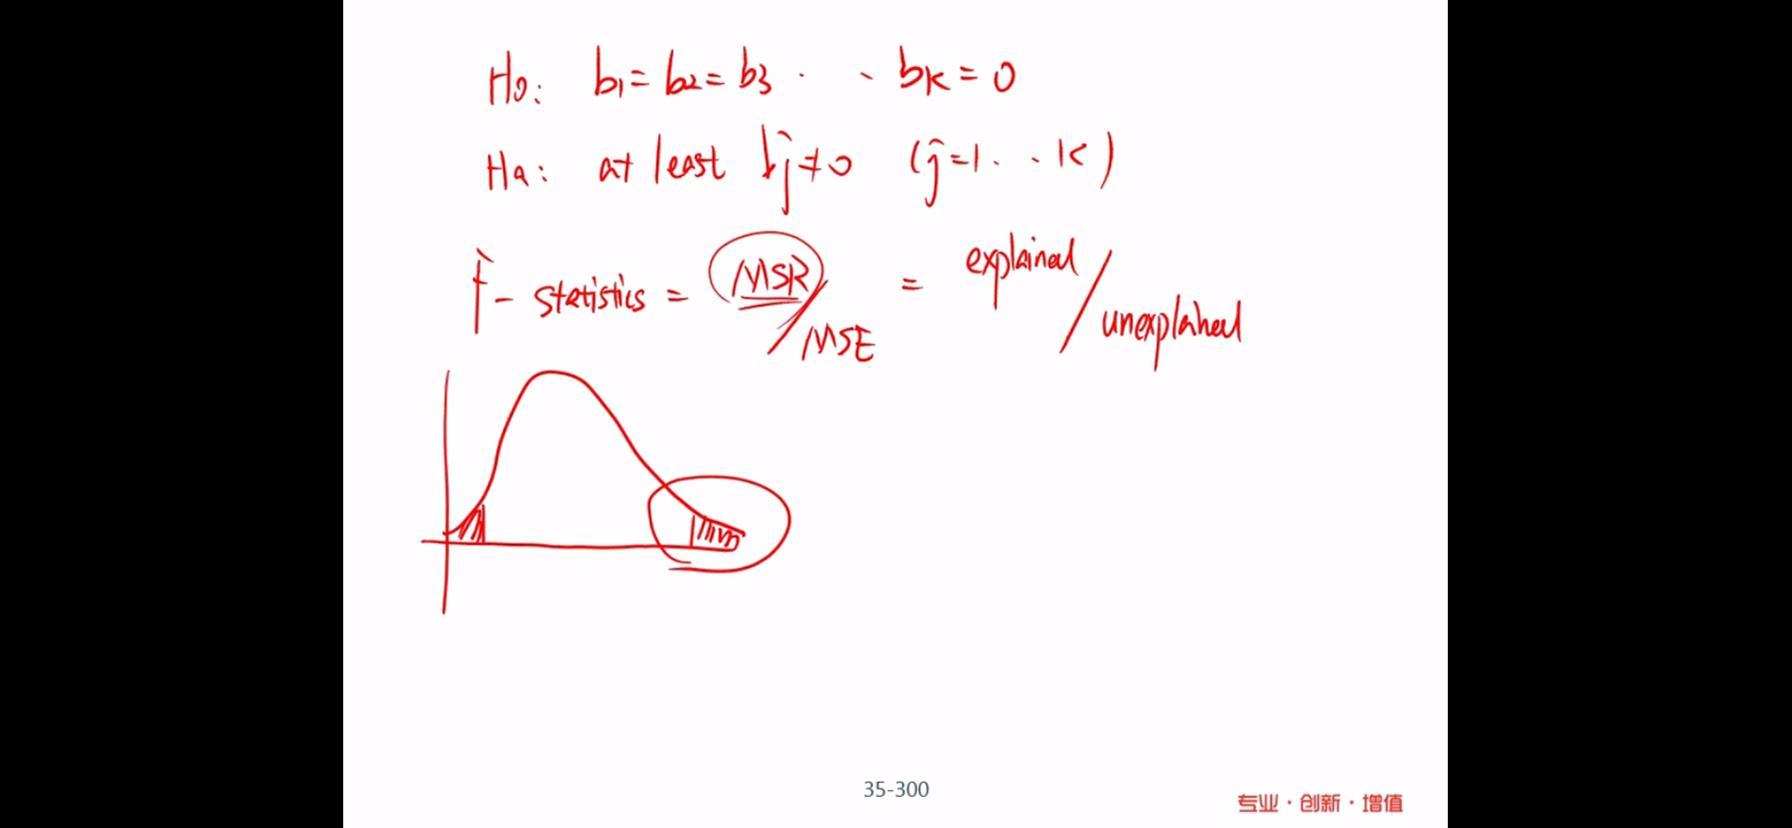 H0: b1 = b2 = b3 · · bK = 0
Ha: at least bj ≠ 0 (j=1 · · K)
F- statistics = MSR/MSE = explained/unexplained
35-300
专业·创新·增值